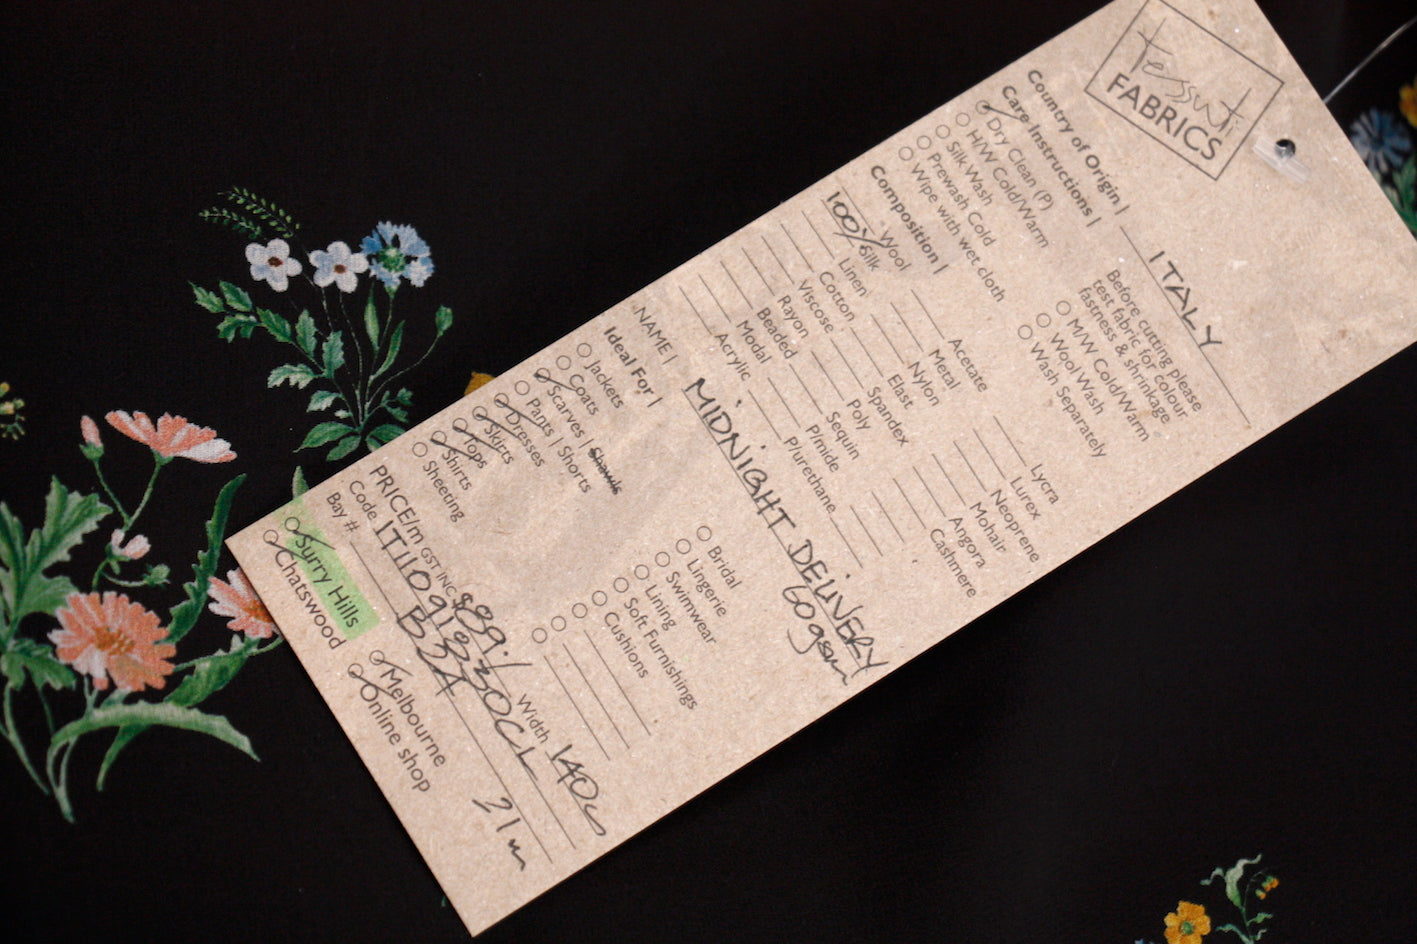 tessuti
FABRICS
Country of Origin | ITALY
Care Instructions |
Dry Clean (P)
H/W Cold/Warm
Silk Wash
Prewash Cold
Wipe with wet cloth
Before cutting please
test fabric for colour
fastness & shrinkage
M/W Cold/Warm
Wool Wash
Wash Separately
Composition |
Wool
100% Silk
Linen
Cotton
Viscose
Rayon
Beaded
Modal
Acrylic
Acetate
Metal
Nylon
Elast
Spandex
Poly
Sequin
P/mide
P/urethane
Lycra
Lurex
Neoprene
Mohair
Angora
Cashmere
NAME | MIDNIGHT DELIVERY
60gsm
Ideal For |
Jackets
Coats
Scarves | Shawls
Pants | Shorts
Dresses
Skirts
Tops
Shirts
Sheeting
Bridal
Lingerie
Swimwear
Lining
Soft Furnishings
Cushions
PRICE/m GST INC $89./ Width 140c
Code
Bay # B3A 21m
Surry Hills
Chatswood
Melbourne
Online shop